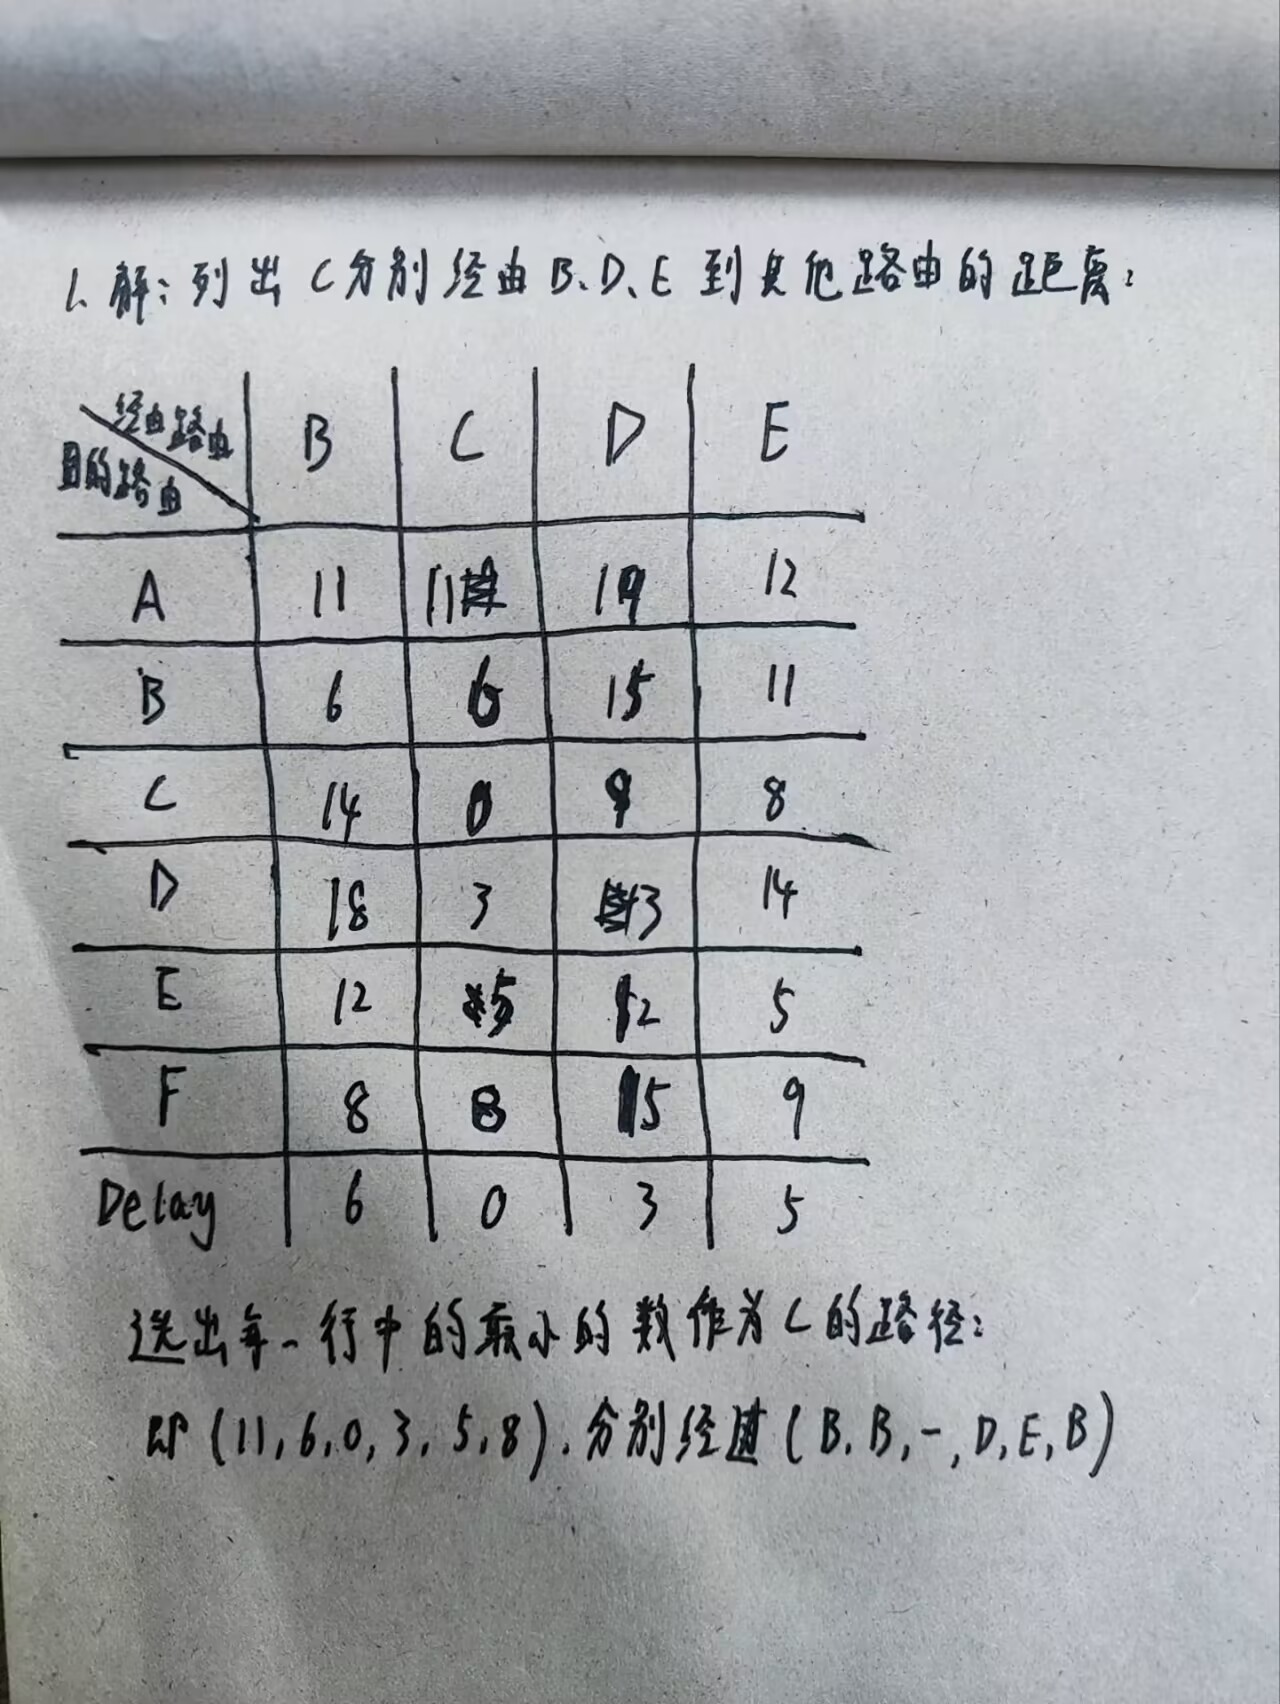 1、解：列出C分别经由B、D、E到其他路由的距离：
经由路由 B C D E
目的路由
A 11 11 19 12
B 6 6 15 11
C 14 0 9 8
D 18 3 3 14
E 12 5 12 5
F 8 8 15 9
Delay 6 0 3 5
选出每一行中的最小的数作为C的路径：
即(11,6,0,3,5,8).分别经过(B.B,-,D,E,B)